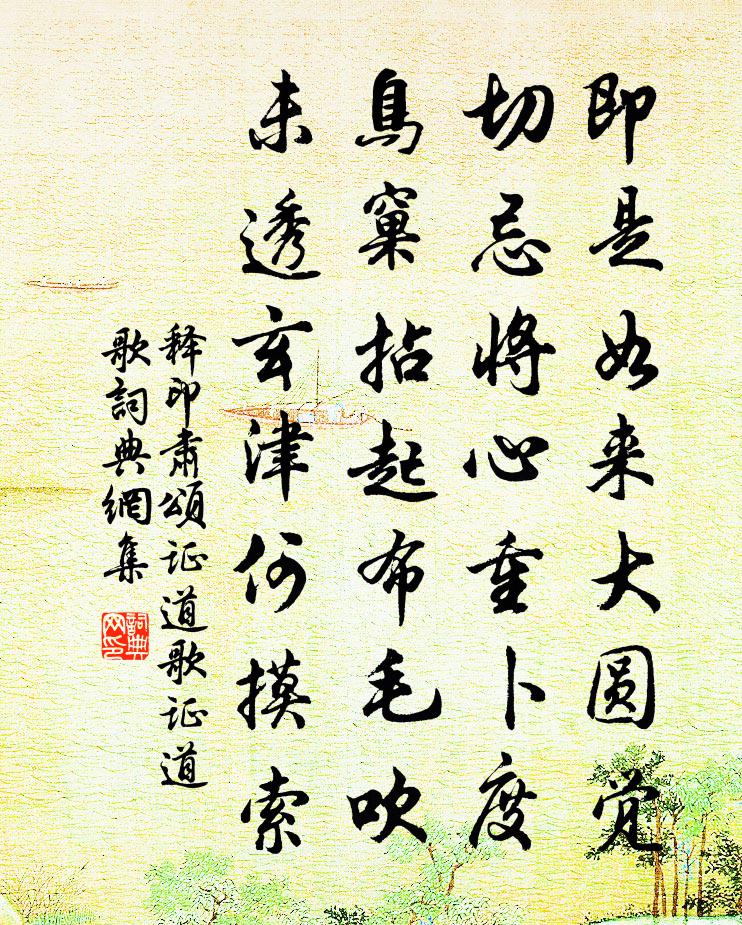 即是如来大圆觉
切忌将心重卜度
鸟窠拈起布毛吹
未透玄津何摸索
释印肃颂证道歌证道
歌詞典網集
詞典
网印